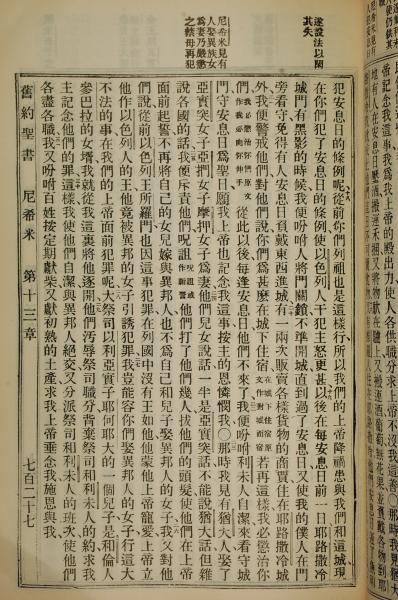 遂設法以關
其失
尼希米見有
人娶異族女
爲妻乃嚴懲
之禁毋再犯
犯安息日的條例呢從前你們列祖也是這樣行所以我們的上帝降禍患與我們和這城現
在你們犯了安息日的條例使以色列人干犯主怒更甚以後在每安息日前一日耶路撒冷
城門有黑影的時候我便吩咐人將門關鎖不準開城直到過了安息日又使我的僕人在門
旁看守免得有人安息日負戴東西進城有一兩次販賣各樣貨物的商賈住在耶路撒冷
外我便警戒他們對他們說你們爲甚麽在城下住宿在城下住宿原文作對城而宿若再這樣我必懲治你
們我必懲治你們原文作我必向你伸手從此以後每逢安息日他們不來了我便吩咐利未人自潔來看守城
門守安息日爲聖日願我上帝也記念我這事按主的恩憐憫我○那時我見有猶大人娶了
亞實突女子亞捫女子摩押女子爲妻他們兒女說話一半是亞實突話不能說猶大話但雜
說各國的話我便斥責他們呪詛他們打了他們幾人拔他們的頭髮使他們在上帝
面前起誓不再將自己的女兒嫁與異邦人也不爲自己和兒子娶異邦人的女子我又對他
們說從前以色列王所羅門也因這事犯罪在列國中沒有王如他他蒙上帝寵愛上帝立
他作以色列人的王他竟被異邦的女子引誘犯罪我豈能容你們娶異邦人的女子行這大
不法的事在我們的上帝面前犯罪呢大祭司以利亞實子耶何耶大的一個兒子是和倫人
參巴拉的女壻我就從我這裏將他逐開他們污辱祭司職分背棄祭司和利未人的約求我
主記念他們的罪這樣我使他們自潔與異邦人絕交又分派祭司和利未人的班次使他們
各盡各職我又吩咐百姓按定期獻柴又獻初熟的土產求我上帝垂念我施恩與我
舊約聖書 尼希米 第十三章 七百二十七